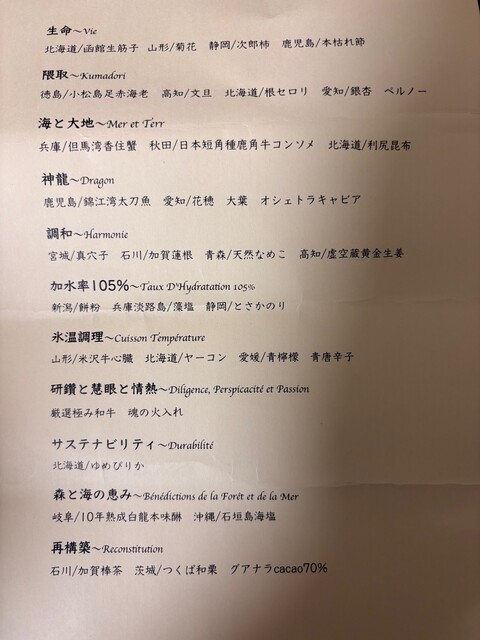 生命～Vie
北海道/函館生筋子　山形/菊花　静岡/次郎柿　鹿児島/本枯れ節
隈取～Kumadori
徳島/小松島足赤海老　高知/文旦　北海道/根セロリ　愛知/銀杏　ペルノー
海と大地～Mer et Terr
兵庫/但馬湾香住蟹　秋田/日本短角種鹿角牛コンソメ　北海道/利尻昆布
神龍～Dragon
鹿児島/錦江湾太刀魚　愛知/花穂　大葉　オシェトラキャビア
調和～Harmonie
宮城/真穴子　石川/加賀蓮根　青森/天然なめこ　高知/虚空蔵黄金生姜
加水率105%～Taux D'Hydratation 105%
新潟/餅粉　兵庫淡路島/藻塩　静岡/とさかのり
氷温調理～Cuisson Température
山形/米沢牛心臓　北海道/ヤーコン　愛媛/青檸檬　青唐辛子
研鑽と慧眼と情熱～Diligence, Perspicacité et Passion
厳選極み和牛　魂の火入れ
サステナビリティ～Durabilité
北海道/ゆめぴりか
森と海の恵み～Bénédictions de la Forêt et de la Mer
岐阜/10年熟成白龍本味醂　沖縄/石垣島海塩
再構築～Reconstitution
石川/加賀棒茶　茨城/つくば和栗　グアナラcacao70%